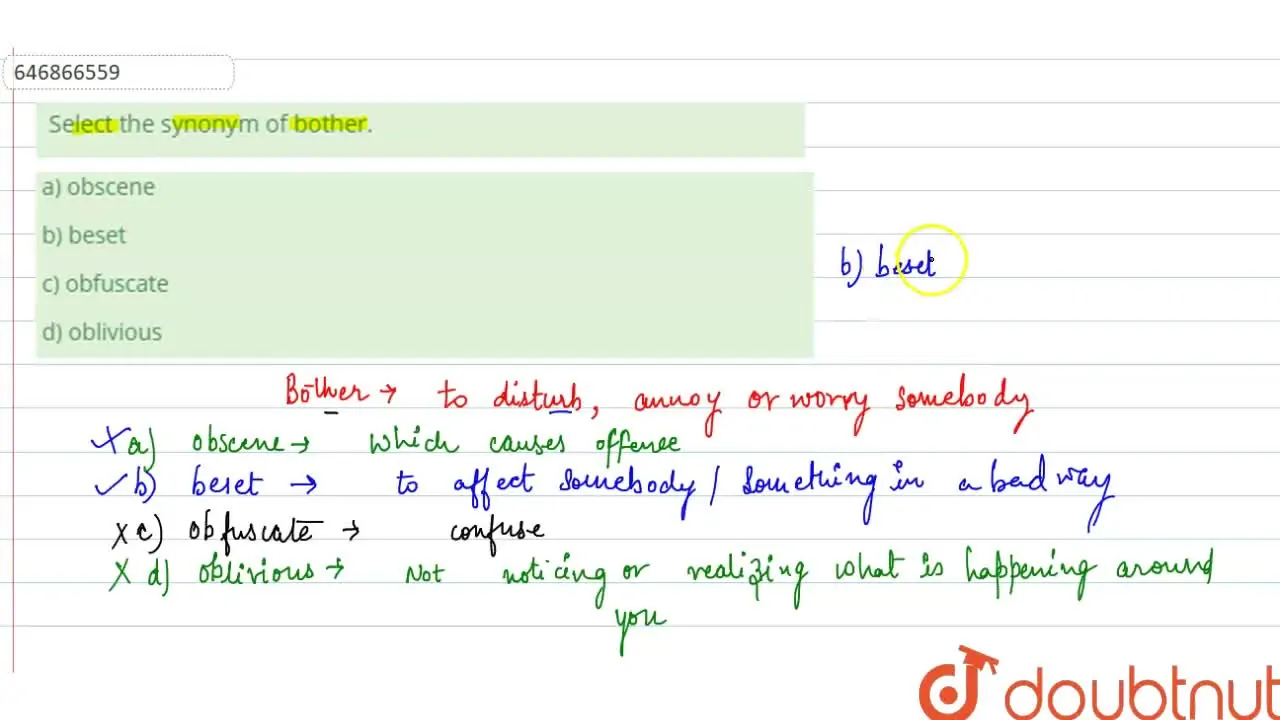 646866559
Select the synonym of bother.
a) obscene
b) beset
c) obfuscate
d) oblivious
b) beset
Bother → to disturb, annoy or worry somebody
X a) obscene → which causes offense
✓ b) beset → to affect somebody / something in a bad way
X c) obfuscate → confuse
X d) oblivious → Not noticing or realizing what is happening around
you
doubtnut